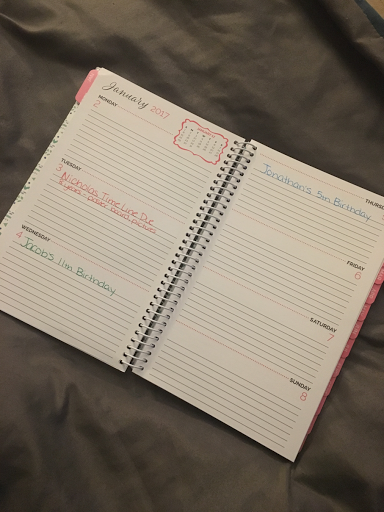 January 2017
MONDAY
2
TUESDAY
3
Nicholas Time Line Due
WEDNESDAY
4
Jacobs 11th Birthday
THURS
Jonathan's 5th Birthday
FRIDAY
6
SATURDAY
7
SUNDAY
8